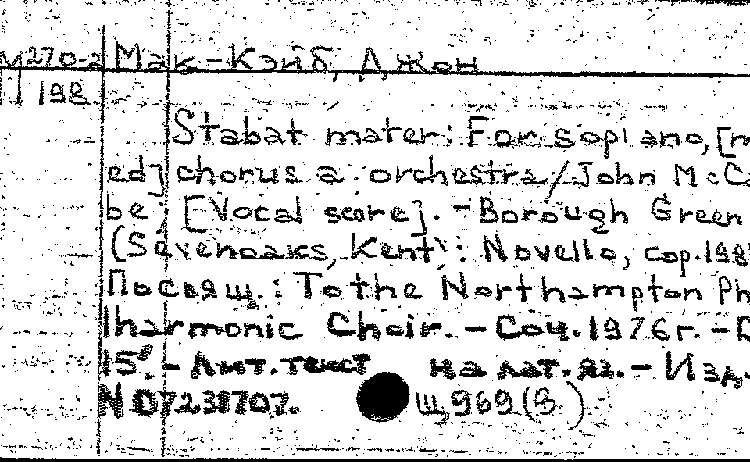 М270-2 Мак-Кэйб, Джон
198
Stabat mater: For soprano, [m
ed] chorus a. orchestra / John McCa
be. [Vocal score]. - Borough Green
(Sevenoaks, Kent): Novello, cop. 198
Посвящ.: To the Northampton Ph
lharmonic Choir. - Соч. 1976 г. -
15'. - Лит. текст на лат. яз. - Изд.
N 07231707. Щ969(3)